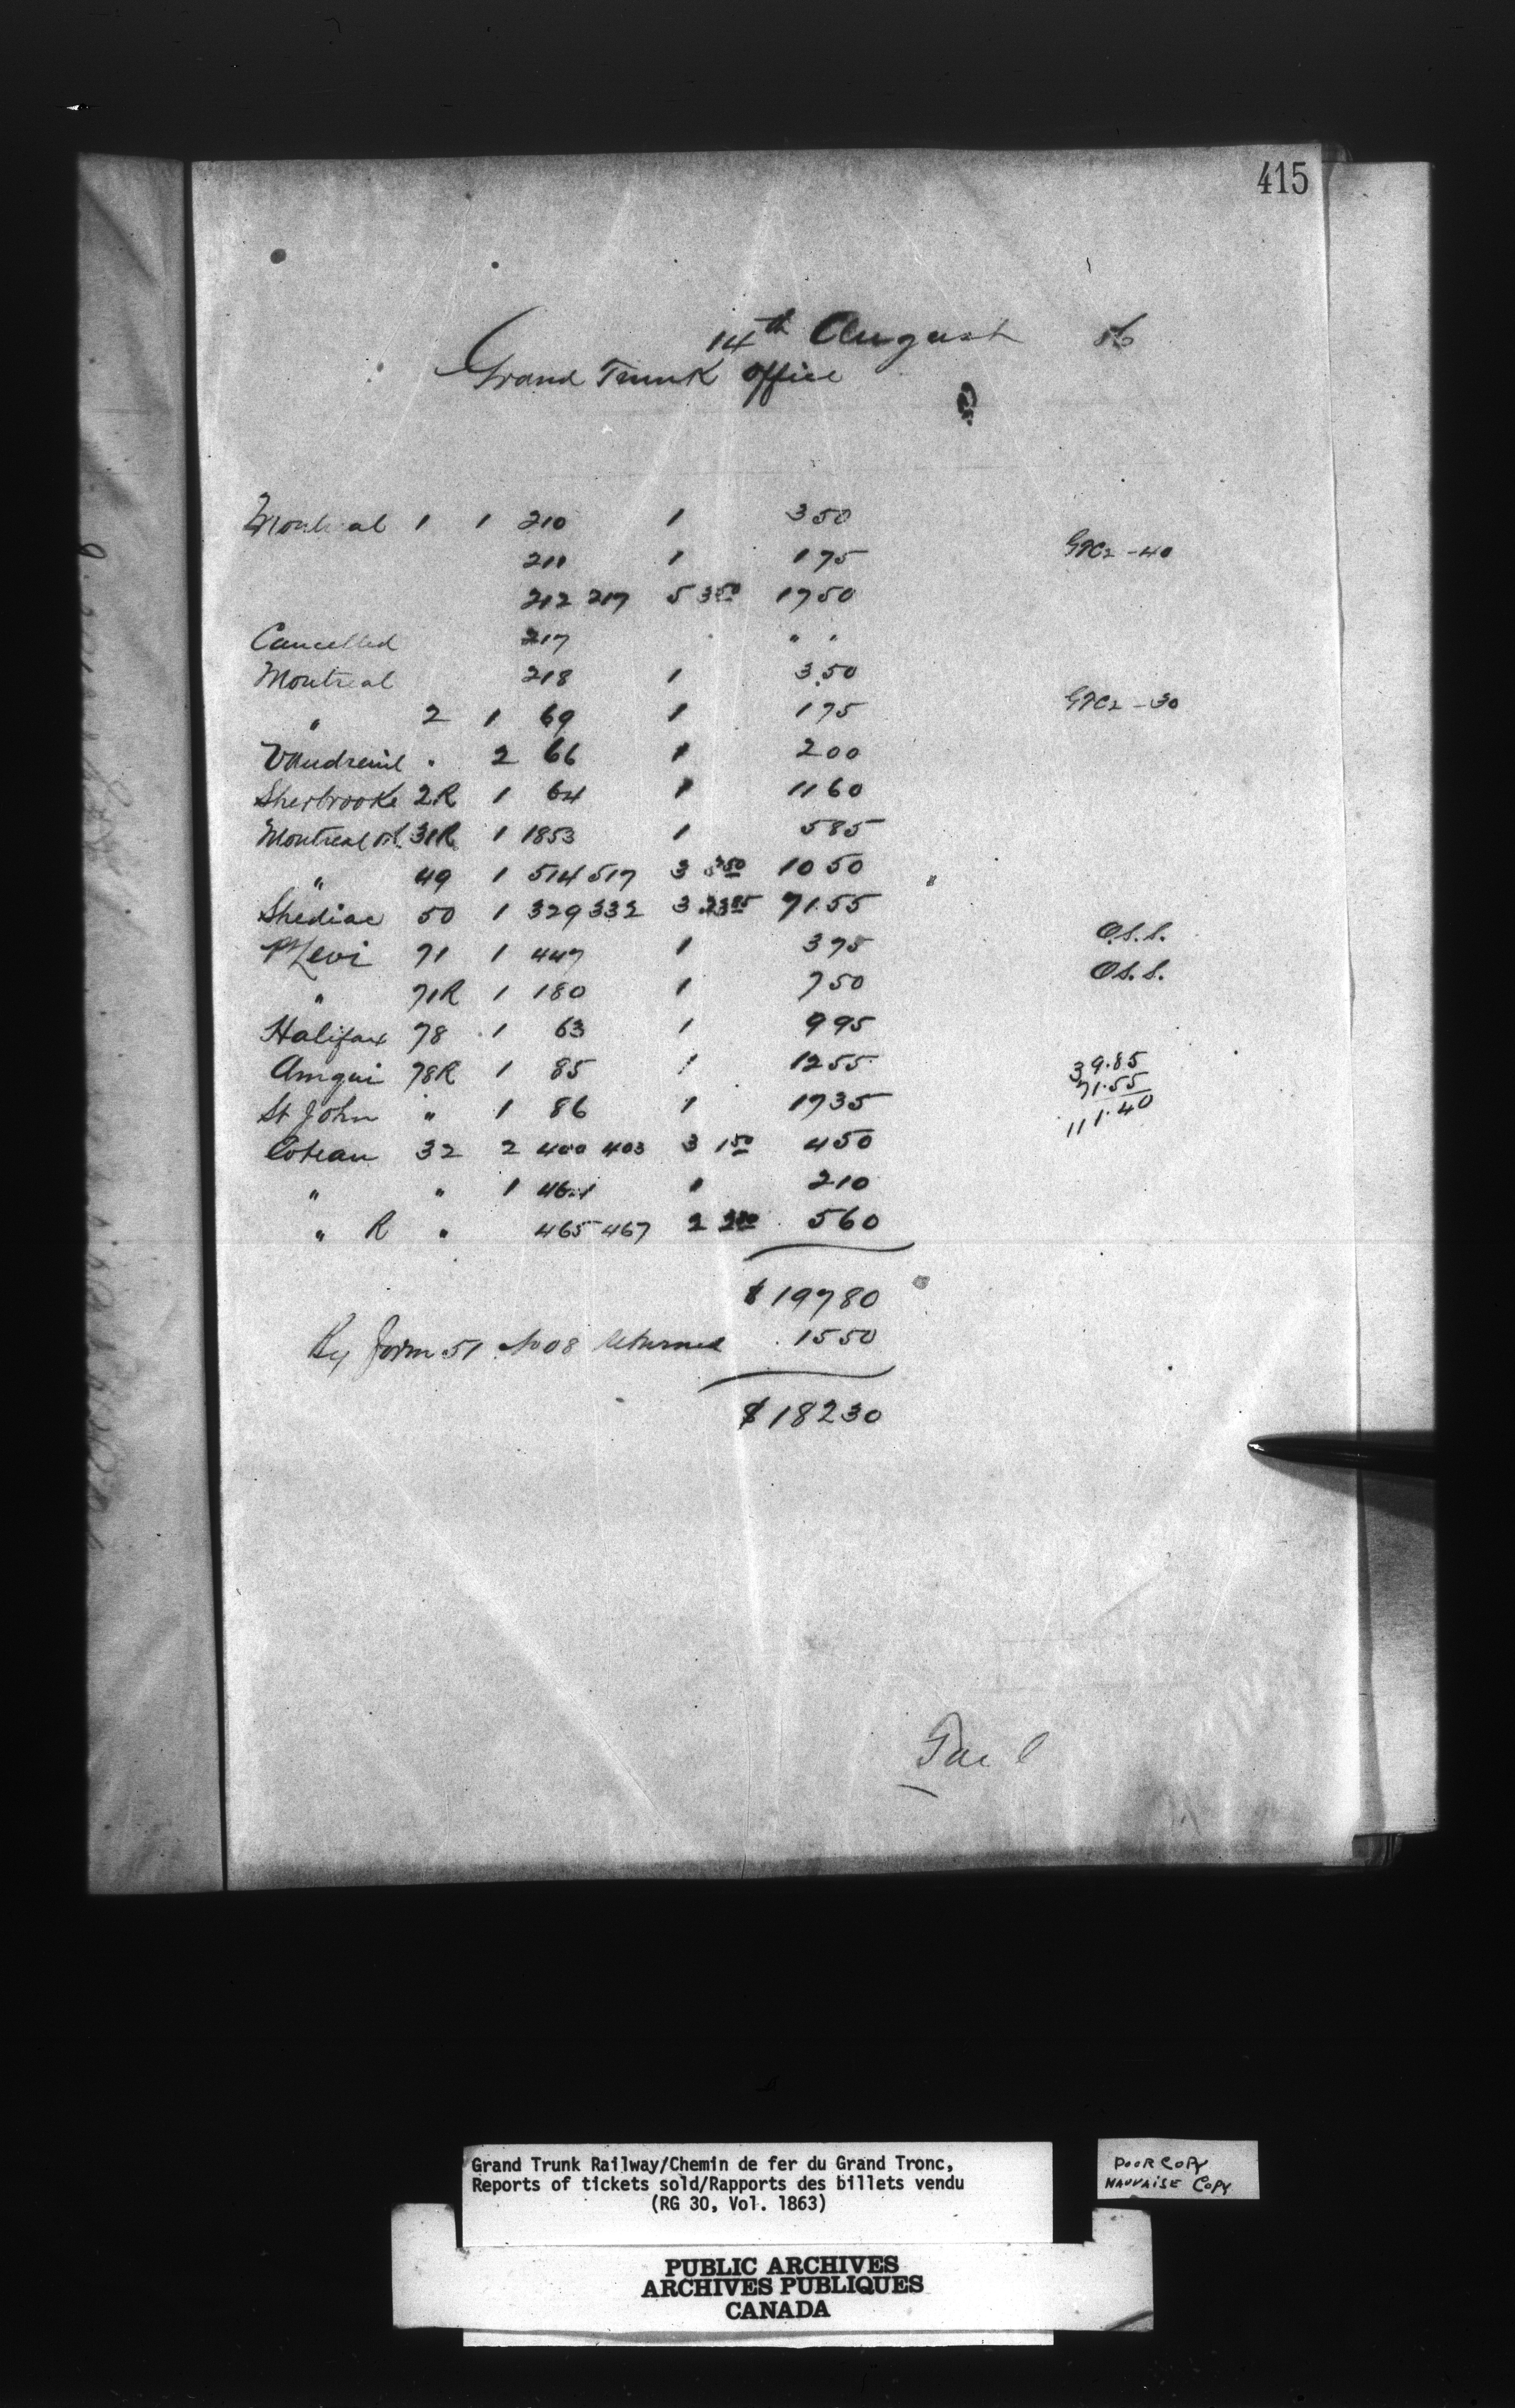 415
14th August 86
Grand Trunk Office
Montreal 1 1 210 1 350
211 1 175 GTC2 - 40
212 217 5 350 1750
Cancelled 217 " "
Montreal 218 1 3.50
" 2 1 69 1 175 GTC2 - 30
Vaudreuil " 2 66 1 200
Sherbrooke 2R 1 64 1 1160
Montreal 31R 1 1853 1 585
" 49 1 514 517 3 350 1050
Shediac 50 1 329 332 3 2385 71.55
Pt Levi 71 1 447 1 375 O.S.S.
" 71R 1 180 1 750 O.S.S.
Halifax 78 1 63 1 995
Amqui 78R 1 85 1 1255 39.85
71.55
St John " 1 86 1 1735 111.40
Coteau 32 2 400 403 3 150 450
" " 1 464 1 210
" R " 465 467 2 280 560
$ 19780
By Form 51 No 08 returned 1550
$ 18230
Grand Trunk Railway/Chemin de fer du Grand Tronc,
Reports of tickets sold/Rapports des billets vendu
(RG 30, Vol. 1863)
POOR COPY
MAUVAISE COPY
PUBLIC ARCHIVES
ARCHIVES PUBLIQUES
CANADA